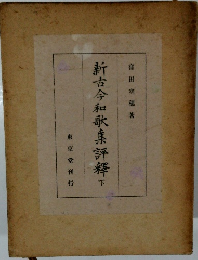 窪田空穂著
新古今和歌集評釋 下
東京堂刊行